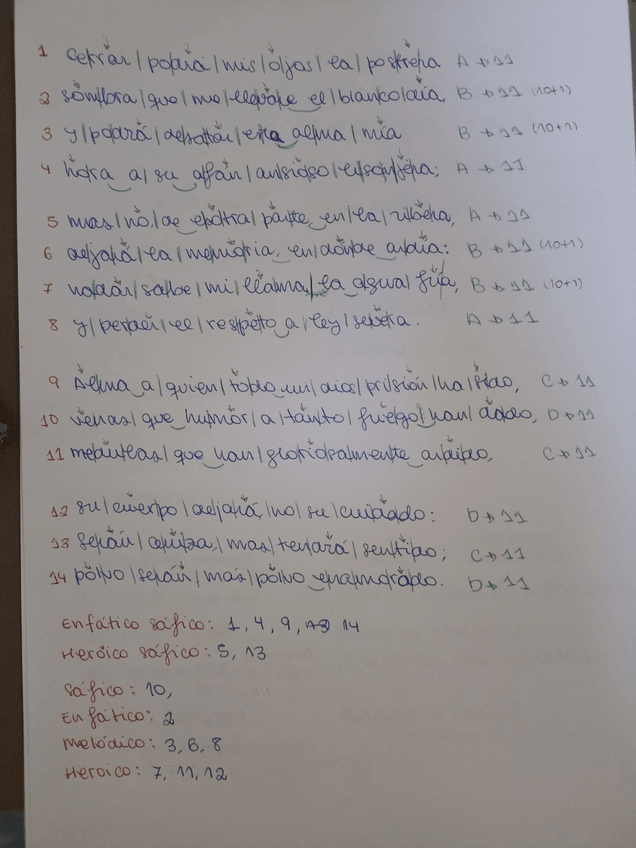 1 Cerrar / podrá / mis / ojos / la / postrera A → 11
2 sombra / que / me llevare el / blanco / día, B → 11 (10+1)
3 y / podrá / desatar / esta alma / mía B → 11 (10+1)
4 hora a / su afán / ansioso / lisonjera; A → 11
5 mas / no, / de esotra / parte, en / la / ribera, A → 11
6 dejará / la / memoria, en / donde ardía: B → 11 (10+1)
7 nadar / sabe / mi / llama / la agua / fría, B → 11 (10+1)
8 y / perder / el / respeto a / ley / severa. A → 11
9 Alma a / quien / todo un / dios / prisión / ha / sido, C → 11
10 venas / que humor / a / tanto / fuego / han / dado, D → 11
11 medulas / que han / gloriosamente ardido, C → 11
12 su / cuerpo / dejará, / no / su / cuidado: D → 11
13 serán / ceniza, / mas / tendrá / sentido; C → 11
14 polvo / serán, / mas / polvo enamorado. D → 11
Enfático sáfico: 1, 4, 9, 14
Heróico sáfico: 5, 13
Sáfico: 10,
Enfático: 2
Melódico: 3, 6, 8
Heroico: 7, 11, 12